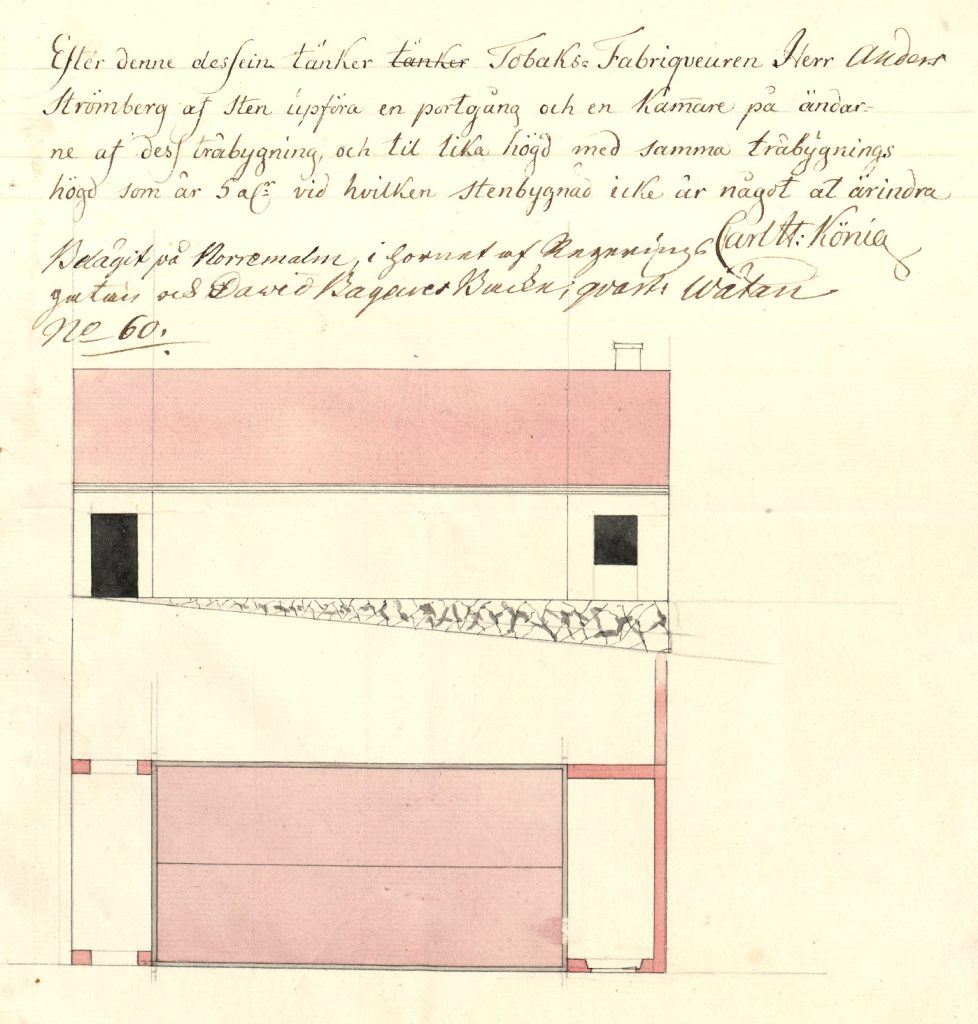 Efter denne dessein tänker tänker Tobaks= Fabriqveuren Herr Anders
Strömberg af sten upföra en portgång och en kam̄are på ändar=
ne af dess träbygning, och til lika högd med samma träbygnings
högd som är 5 alr vid hvilken stenbygnad icke är något at ärindra
Carl H: König
Belägit på Norremalm, i hornet af Regerings
gatan och David Bagares Backe, qvart: Wätan
No 60.